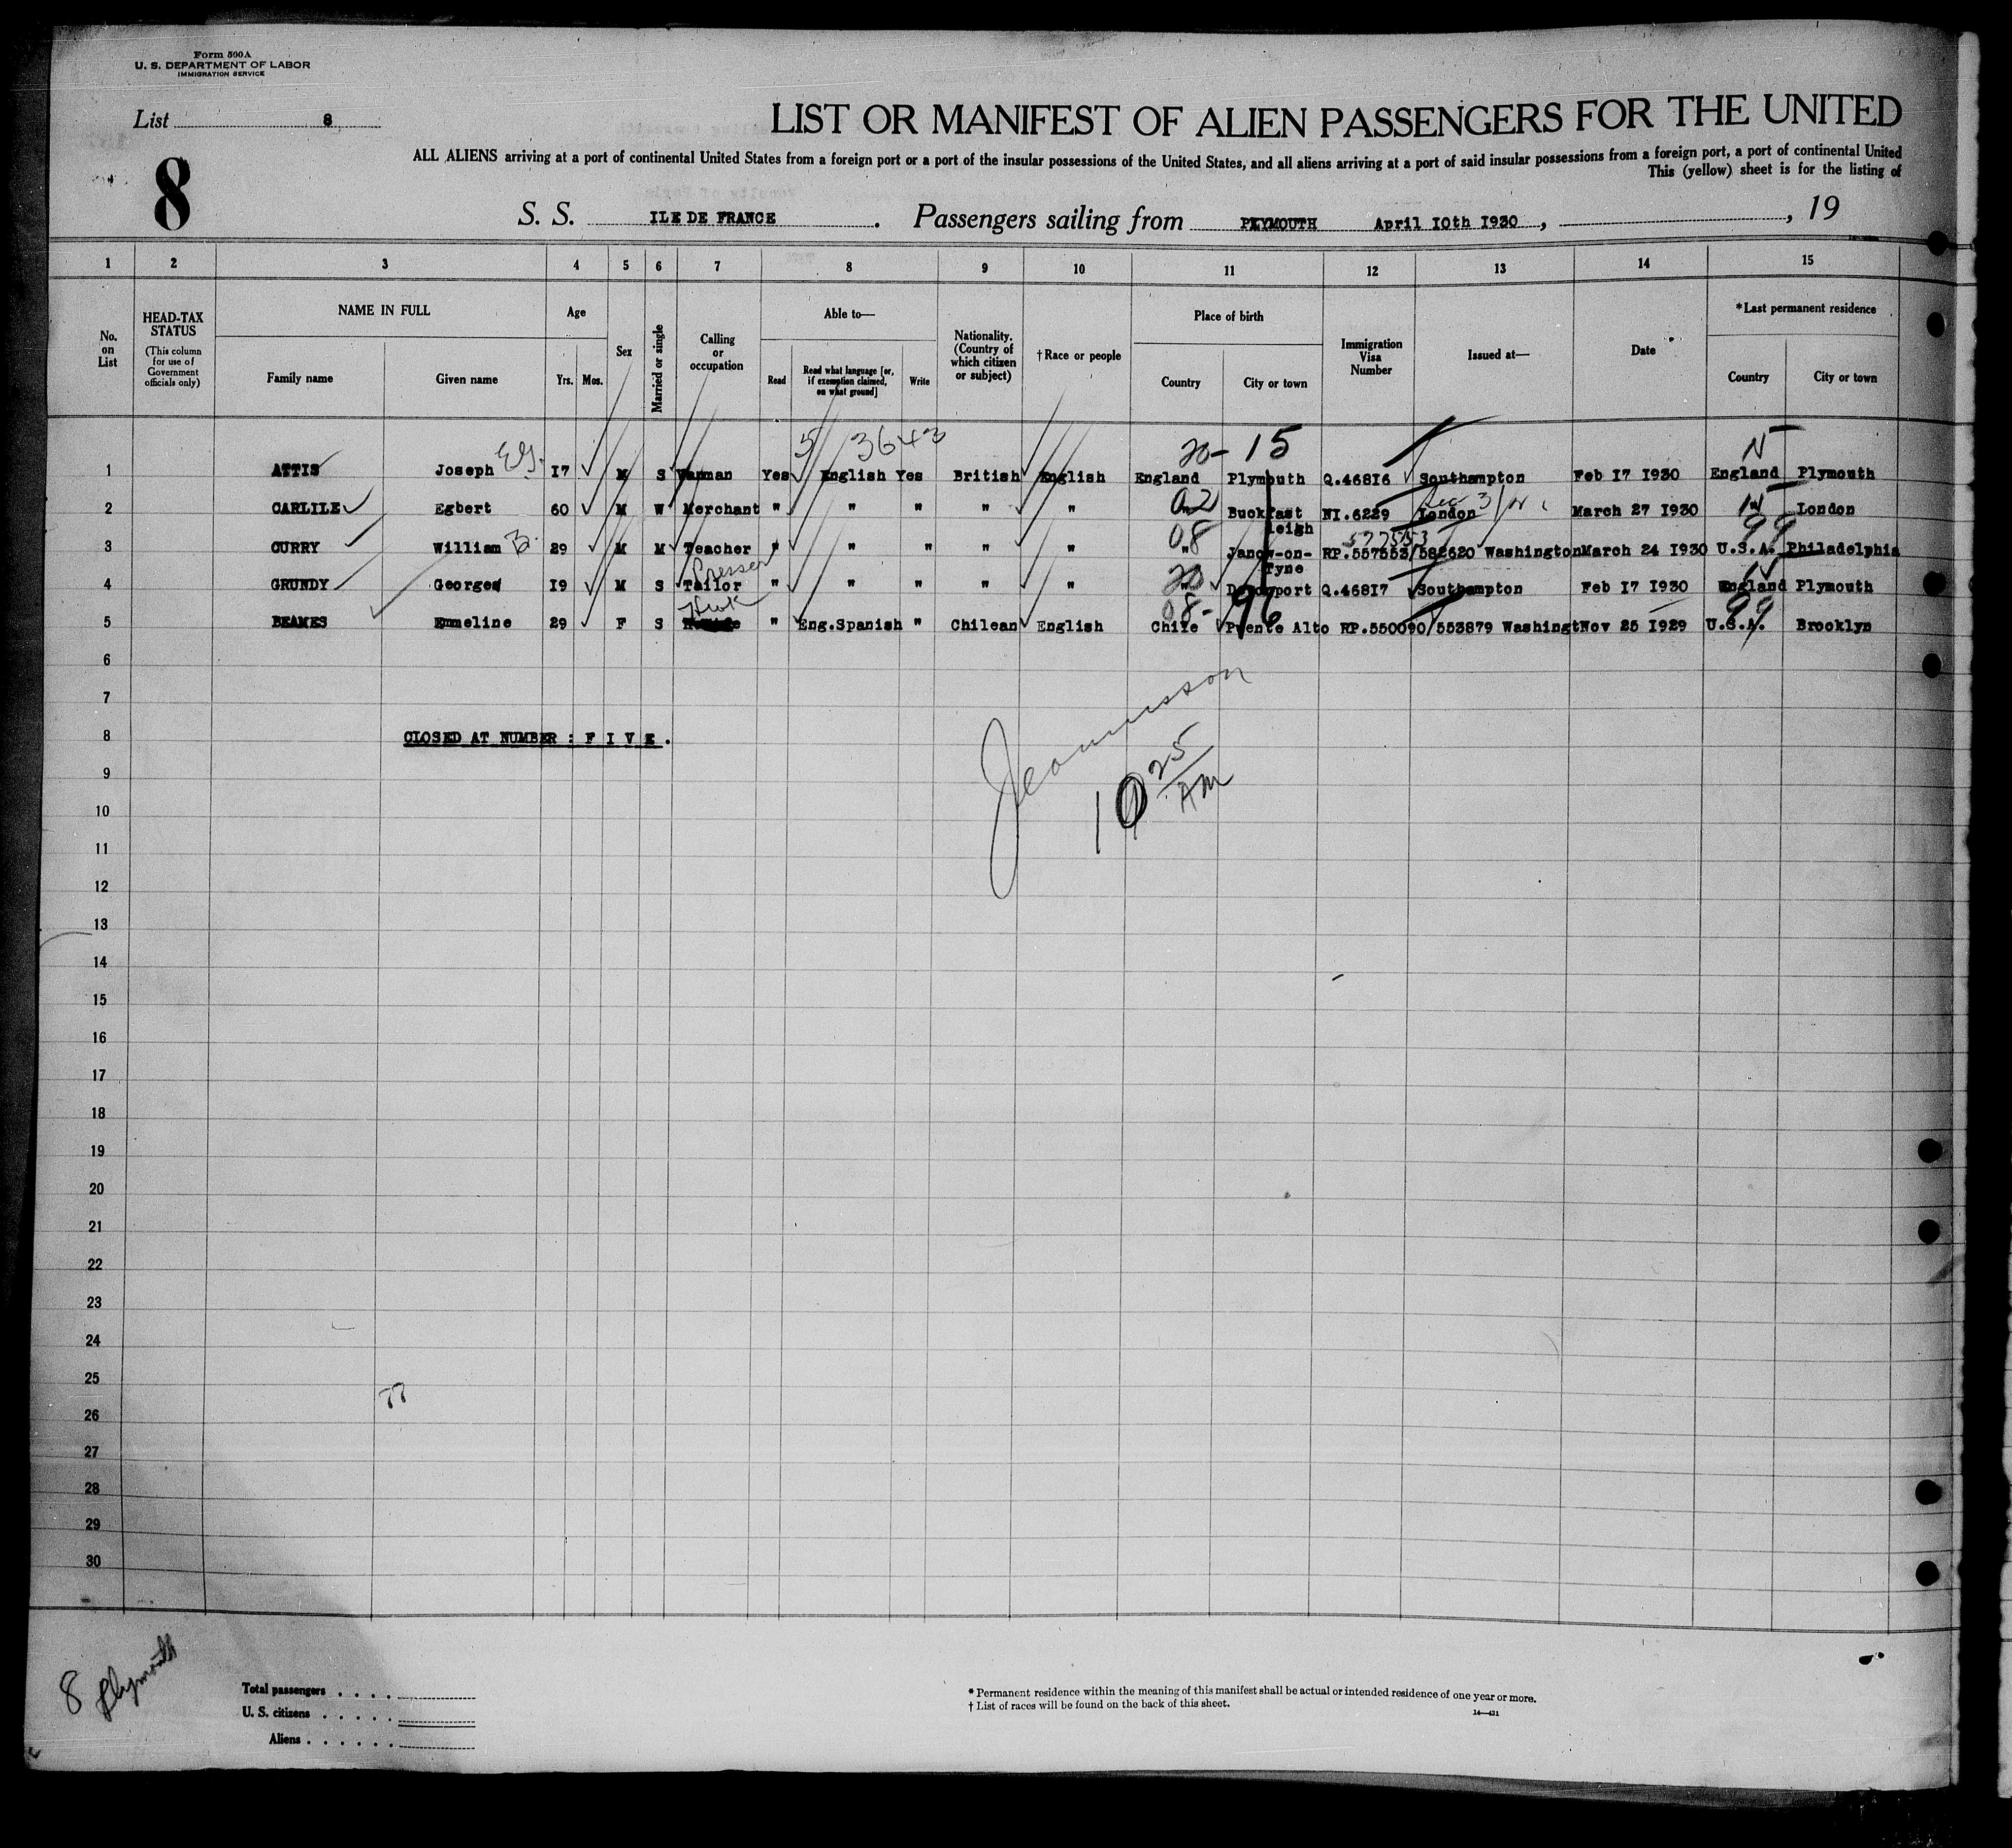 Form 500A
U. S. DEPARTMENT OF LABOR
IMMIGRATION SERVICE
List 8
8
LIST OR MANIFEST OF ALIEN PASSENGERS FOR THE UNITED
ALL ALIENS arriving at a port of continental United States from a foreign port or a port of the insular possessions of the United States, and all aliens arriving at a port of said insular possessions from a foreign port, a port of continental United
This (yellow) sheet is for the listing of
S. S. ILE DE FRANCE. Passengers sailing from PLYMOUTH April 10th 1930, , 19
1 2 3 4 5 6 7 8 9 10 11 12 13 14 15
No. on List
HEAD-TAX STATUS
(This column for use of Government officials only)
NAME IN FULL
Family name
Given name
Age
Yrs. Mos.
Sex
Married or single
Calling or occupation
Able to—
Read
Read what language [or, if exemption claimed, on what ground]
Write
Nationality. (Country of which citizen or subject)
† Race or people
Place of birth
Country
City or town
Immigration Visa Number
Issued at—
Date
*Last permanent residence
Country
City or town
5 3643 20-15 N
1 ATTIS Joseph 17 M S Yes English Yes British English England Plymouth Q.46816 Southampton Feb 17 1930 England Plymouth
2 CARLILE Egbert 60 M W Merchant " " " " " 02 Buckfast NI.6229 London March 27 1930 London
leigh
577553
3 CURRY William B. 29 M M Teacher " " " " " 08 " RP.557553/582620 Washington March 24 1930 U.S.A. 99 Philadelphia
Tyne
Presser
4 GRUNDY George 19 M S Tailor " " " " " 20 Devonport Q.46817 Southampton Feb 17 1930 England Plymouth
08- 96 99
5 BEAMES Emmeline 29 F S " Eng.Spanish " Chilean English Chile Puente Alto RP.550090/553879 Washingt Nov 25 1929 U.S.A. Brooklyn
6
7
8 CLOSED AT NUMBER : F I V E .
9
10 25
10 AM
11
12
13
14
15
16
17
18
19
20
21
22
23
24
25
77
26
27
28
29
30
8 Plymouth
Total passengers . . . .
U. S. citizens . . . . .
Aliens . . . . . .
* Permanent residence within the meaning of this manifest shall be actual or intended residence of one year or more.
† List of races will be found on the back of this sheet.
14—431